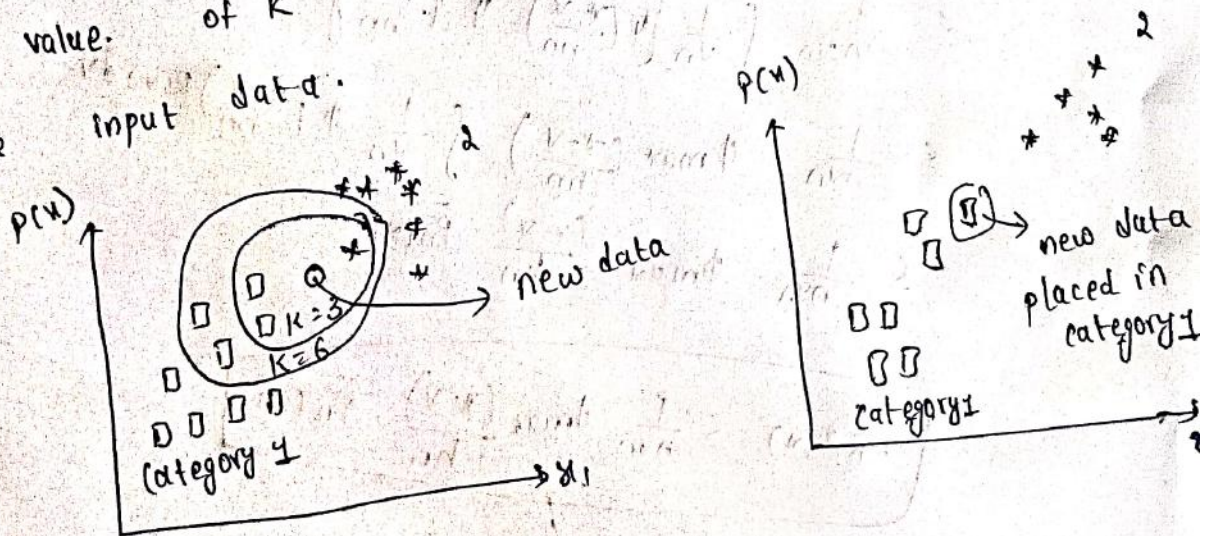 value. of K
input data.
P(x)
2
new data
K=3
K=6
Category 1
x1
P(x)
2
new data
placed in
category 1
category 1